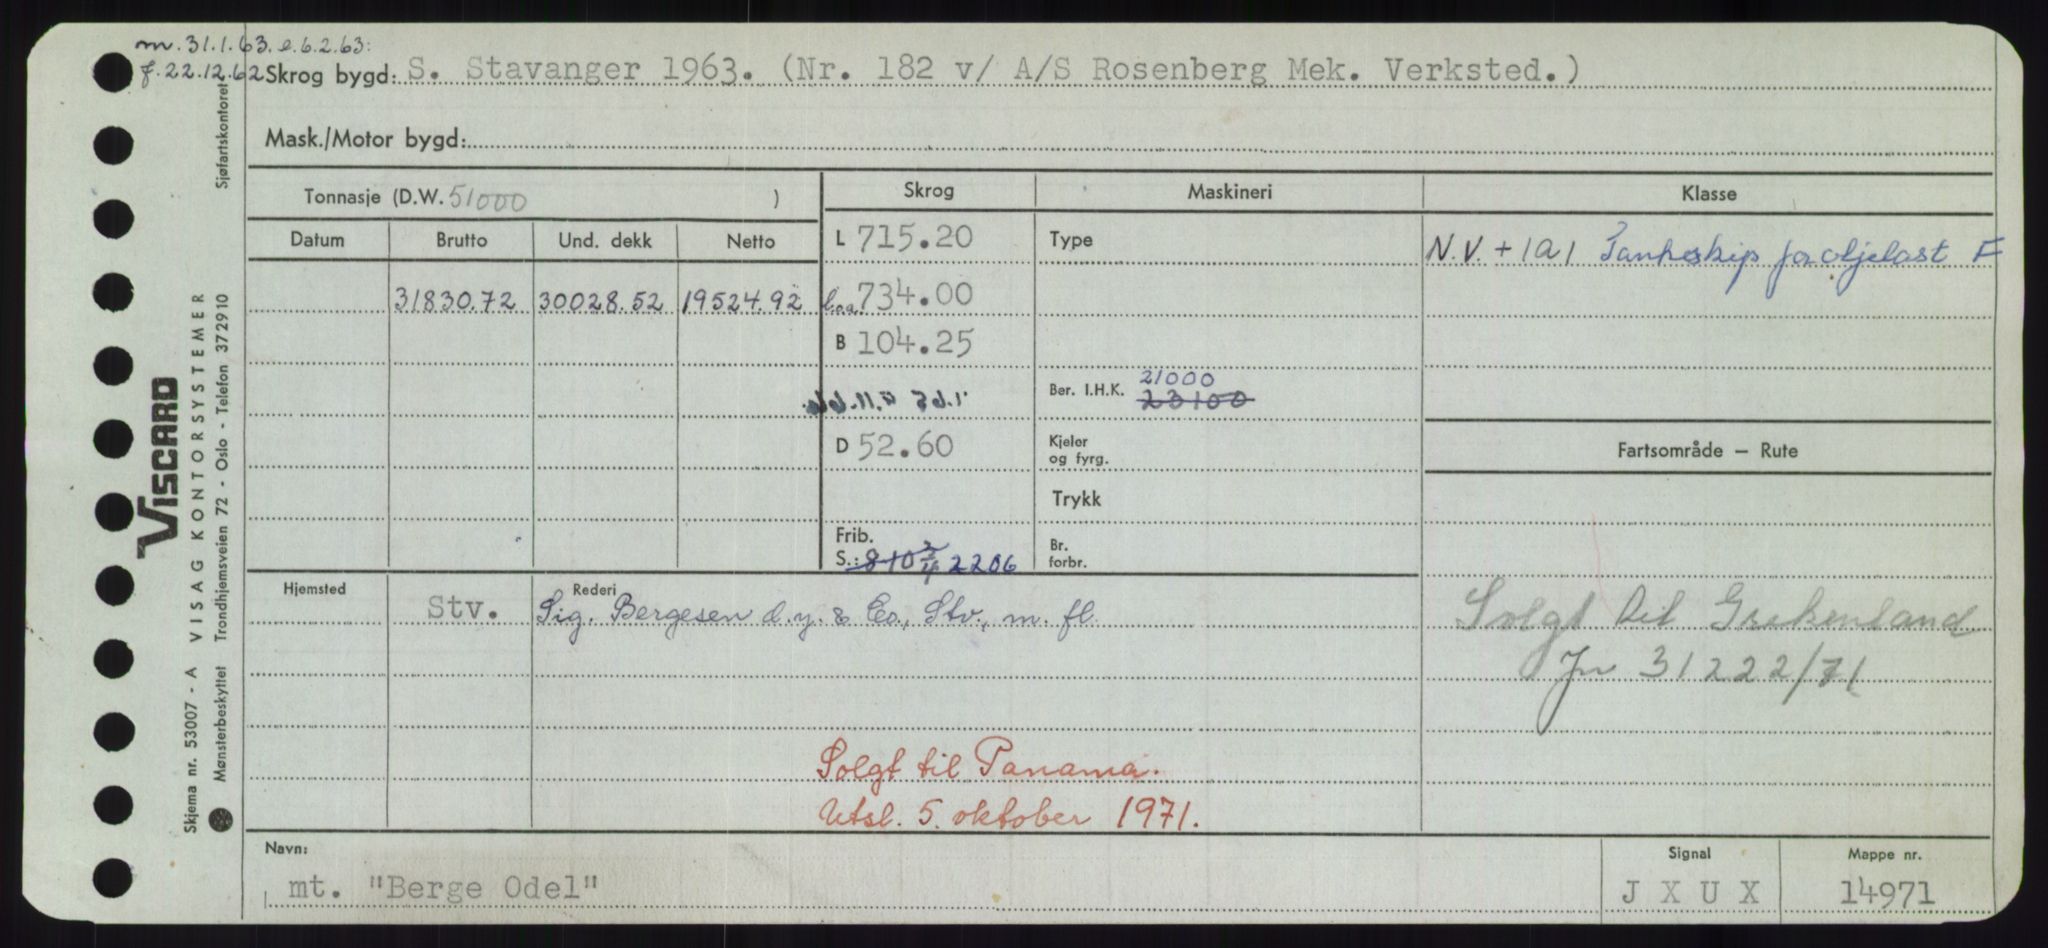 m. 31.1.63. e. 6.2.63:
f. 22.12.62 Skrog bygd: S. Stavanger 1963. (Nr. 182 v/ A/S Rosenberg Mek. Verksted.)
Mask./Motor bygd:
Tonnasje (D.W. 51000 )
Skrog
Maskineri
Klasse
Datum Brutto Und. dekk Netto
L 715.20
Type
N.V. + 1A1 Tankskip for oljelast F
31830.72 30028.52 19524.92
b.o.a. 734.00
B 104.25
Ber. I.H.K. 21000
23100
D 52.60
Kjeler
og fyrg.
Fartsområde — Rute
Trykk
Frib.
S.: 8-10 3/4 2206
Br.
forbr.
Hjemsted
Rederi
Stv. Sig. Bergesen d.y. & Co., Stv., m. fl.
Solgt til Grekenland
Jn 31222/71
Solgt til Panama.
Utsl. 5. oktober 1971.
Navn:
mt. "Berge Odel"
Signal
J X U X
Mappe nr.
14971
VISCARD
Skjema nr. 53007 - A VISAG KONTORSYSTEMER
Mønsterbeskyttet Trondhjemsveien 72 - Oslo - Telefon 372910
Sjøfartskontoret